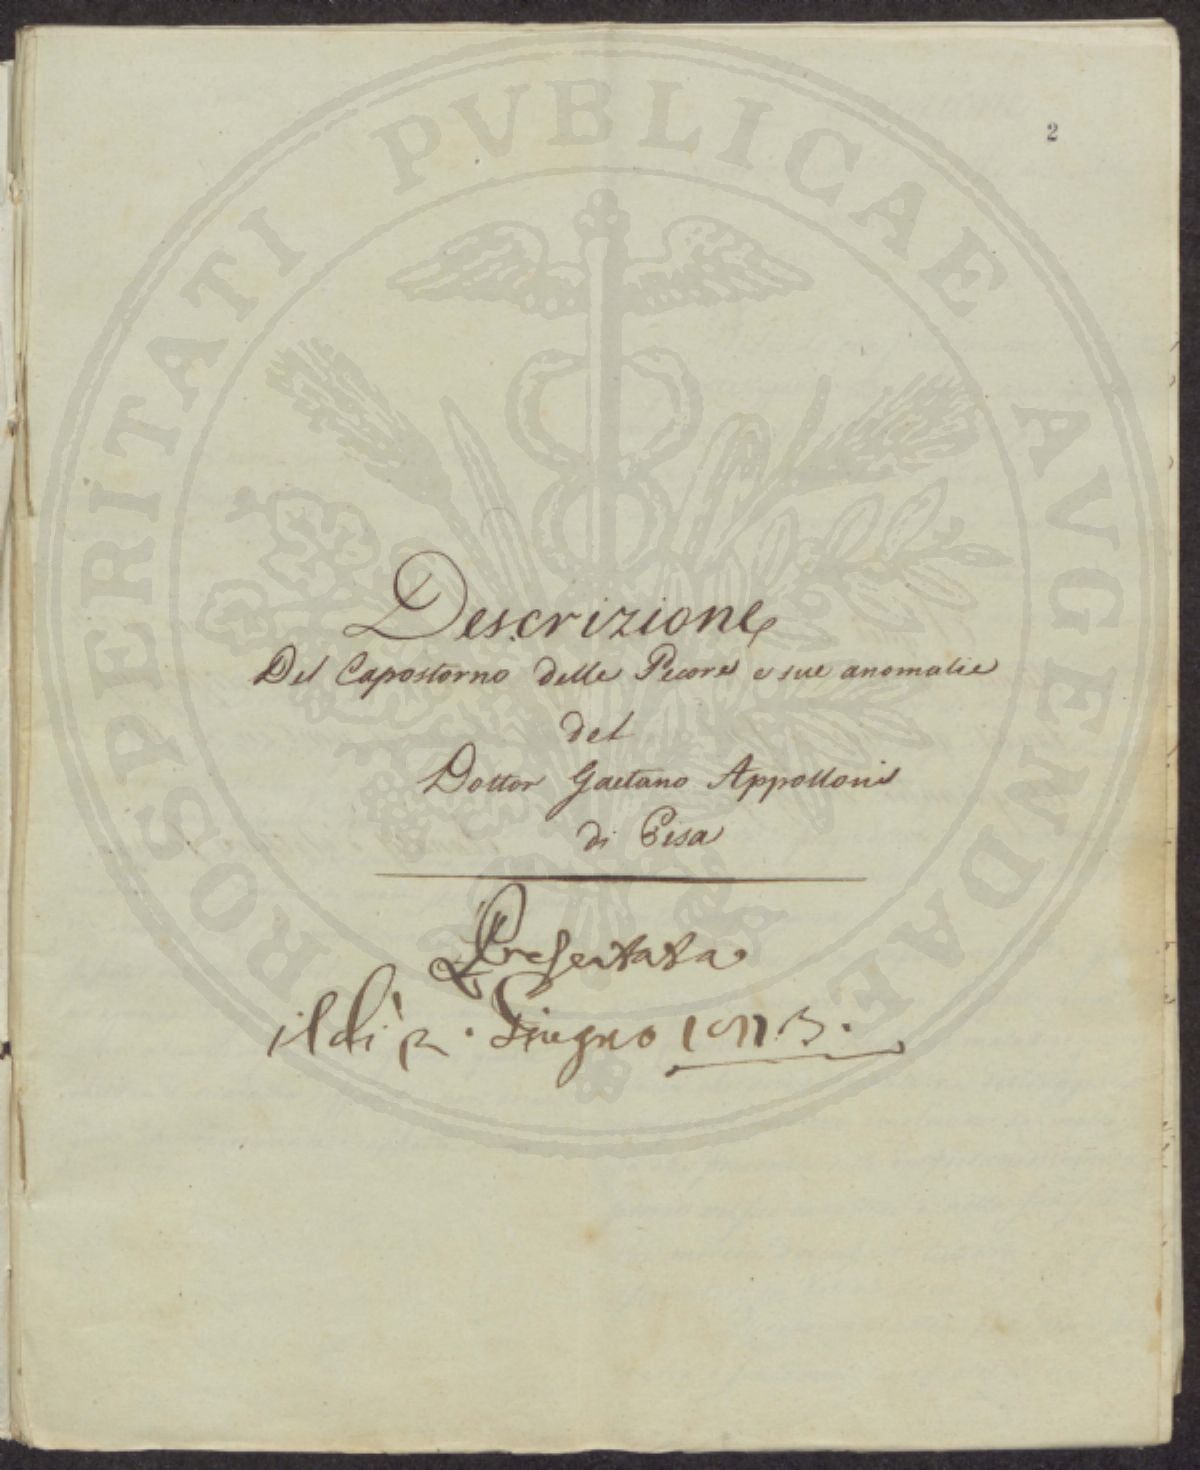 2
PROSPERITATI PVBLICAE AVGENDAE
Descrizione
Del Capostorno delle Pecore e sue anomalie
del
Dottor Gaetano Appolloni
di Pisa
Presentata
il dì 2. Giugno